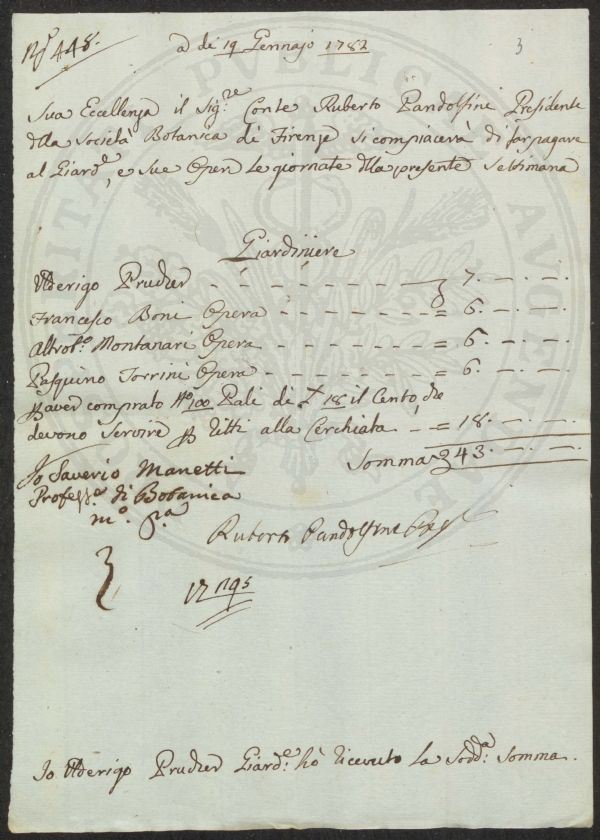 N.º 448.
a dì 19 Gennajo 1782
3
Sua Eccellenza il Sig.re Conte Ruberto Pandolfini Presidente
della Società Botanica di Firenze si compiacerà di far pagare
al Giard.e, e sue Opere le giornate della presente Settimana
Giardiniere
Ulderigo Prucker - - - - - - - 7. - . - .
Francesco Boni Opera - - - - - - = 6. - . - .
Montanari Opera - - - - - - = 6. - . - .
Pasquino Torrini Opera - - - - - - = 6. - . - .
aver comprato N.º 100 Pali di £ 18 il Cento, che
devono servire ritti alla Cerchiata - = 18. - . - .
Somma 43. - . - .
Io Saverio Manetti
Profess.e di Botanica
m.º p.a
Ruberto Pandolfini
Io Ulderigo Prucker Giard.e hò ricevuto la Sodd.a Somma.
PVBLICAE